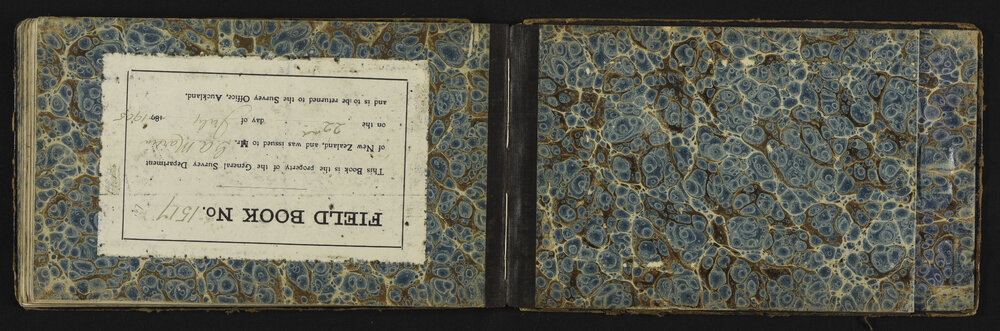 FIELD BOOK No. 1517
This Book is the property of the General Survey Department
of New Zealand, and was issued to Mr.
on the 22nd day of July 1905
and is to be returned to the Survey Office, Auckland.